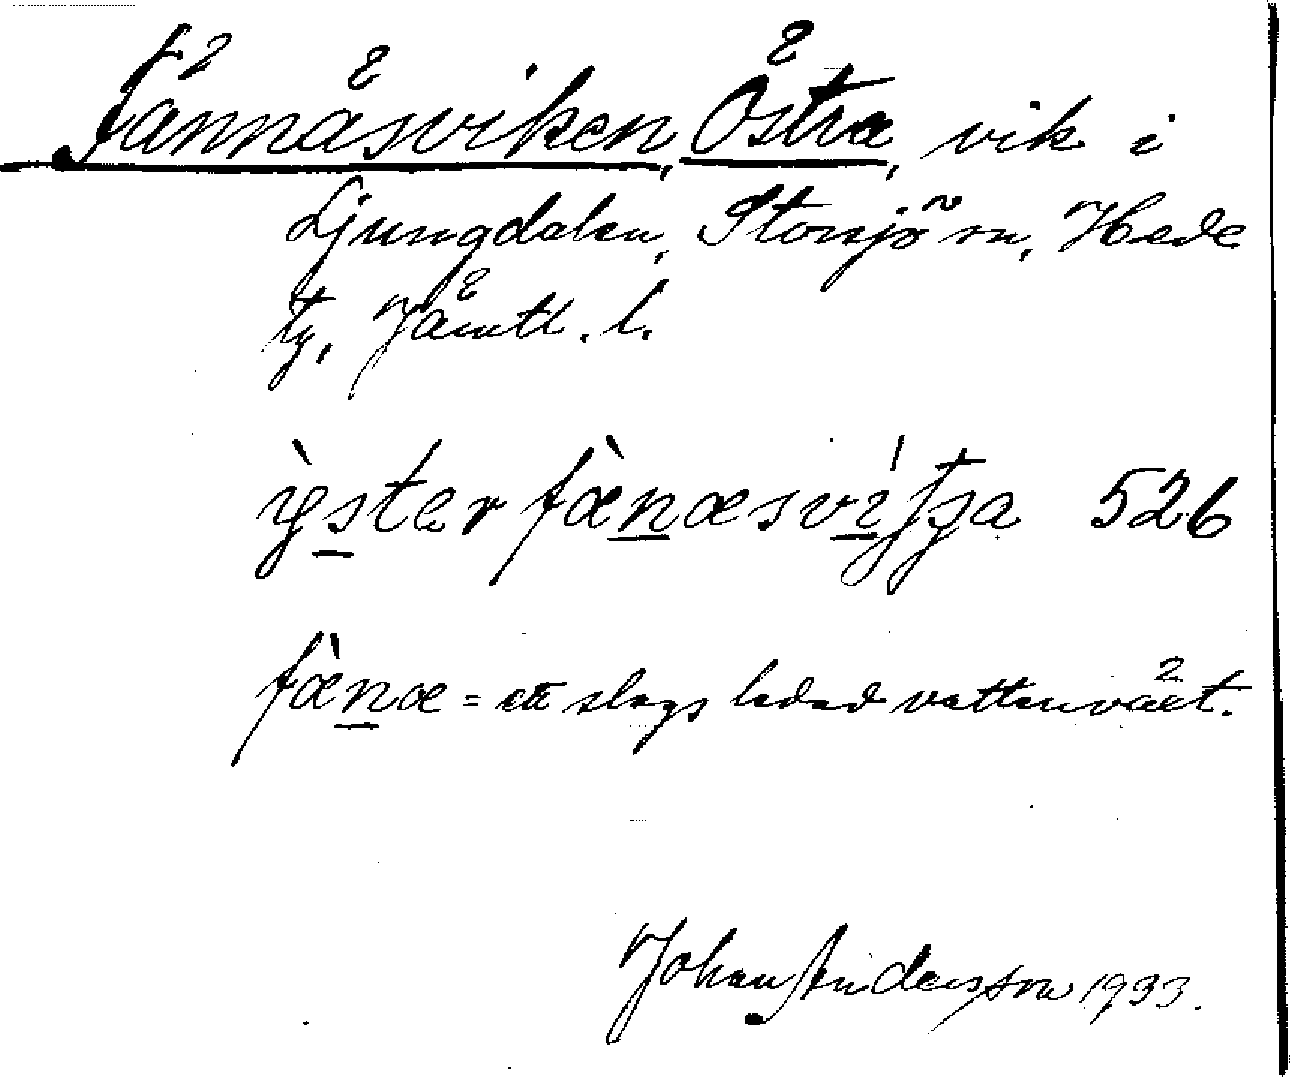 Fännåsviken, Östra, vik i
Ljungdalen, Storsjö sn, Hede
tg, Jämtl. l.
ỳster fæ̀næsvítʃa 526
fæ̀næ = ett slags ledad vattenväxt.
Johan Andersson 1933.